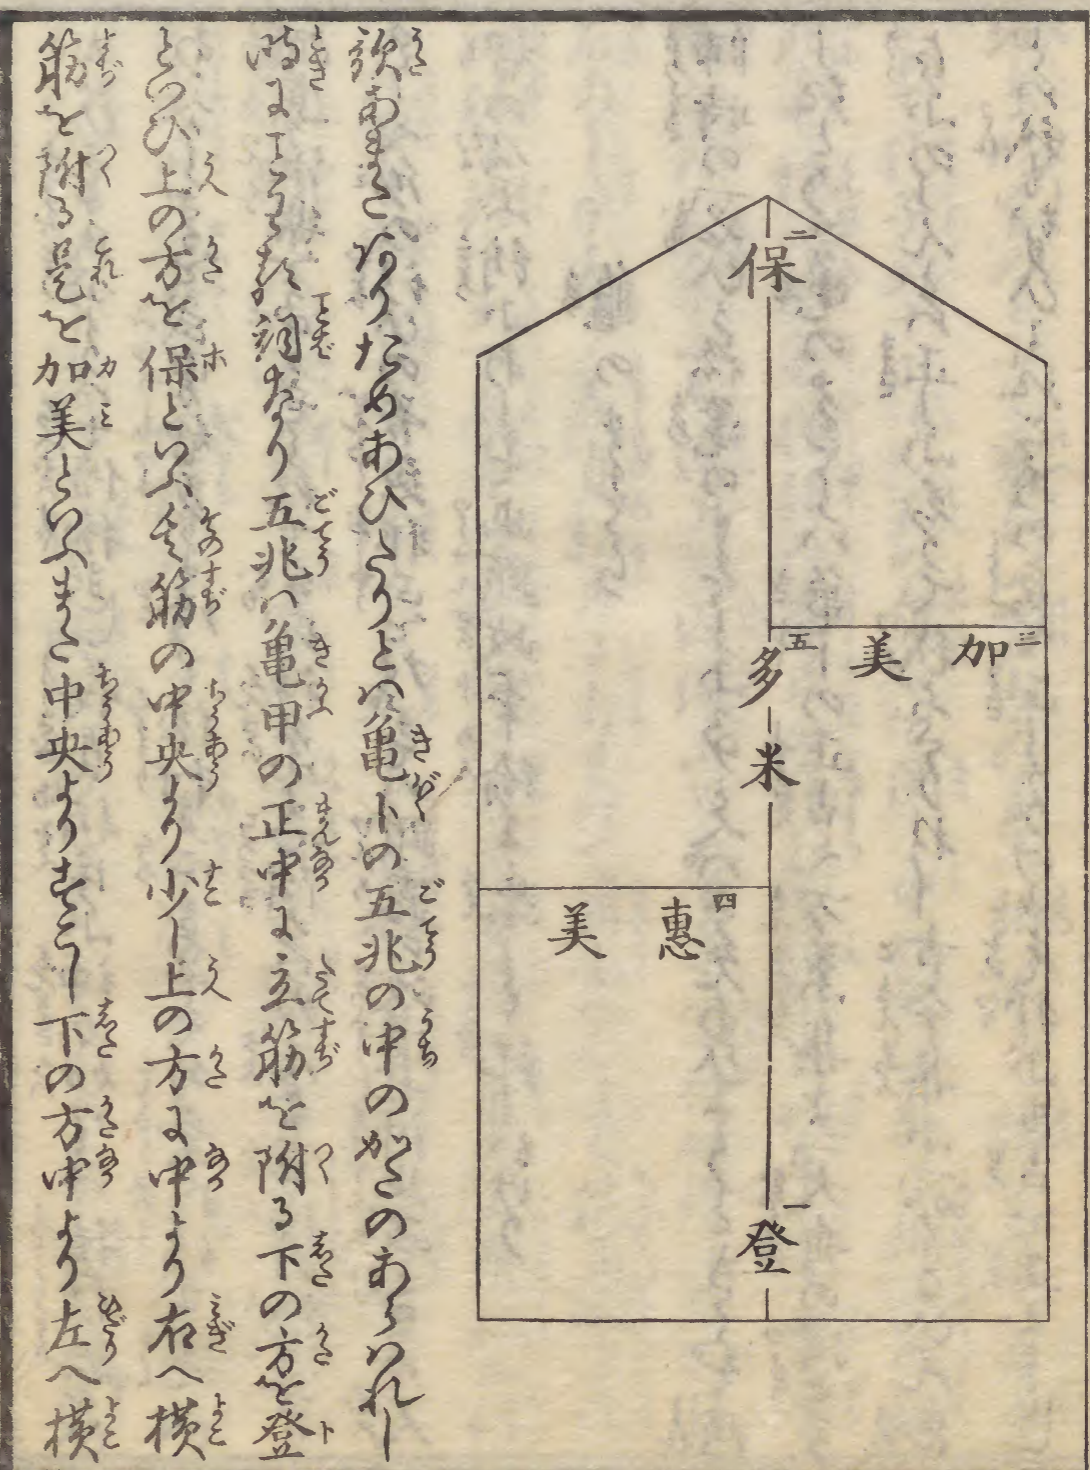 二
保
三
加美
五
多米
四
惠美
一
登
歌あまたありためあひたりとハ亀卜の五兆の中のかたのあらハれし
時に詞なり五兆ハ亀甲の正中に立筋を附る下の方を登
といひ上の方を保といふ其筋の中央より少し上の方に中より右へ横
筋を附る是を加美といふまた中央よりすこし下の方中より左へ横